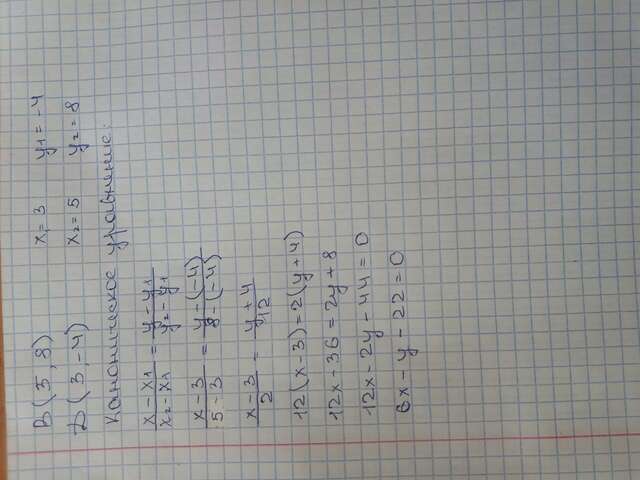 B(5, 8) x₁=3 y₁=-4
D(3,-4) x₂=5 y₂=8
Каноническое уравнение:
(x-x₁)/(x₂-x₁) = (y-y₁)/(y₂-y₁)
(x-3)/(5-3) = (y-(-4))/(8-(-4))
(x-3)/2 = (y+4)/12
12(x-3)=2(y+4)
12x-36=2y+8
12x-2y-44=0
6x-y-22=0